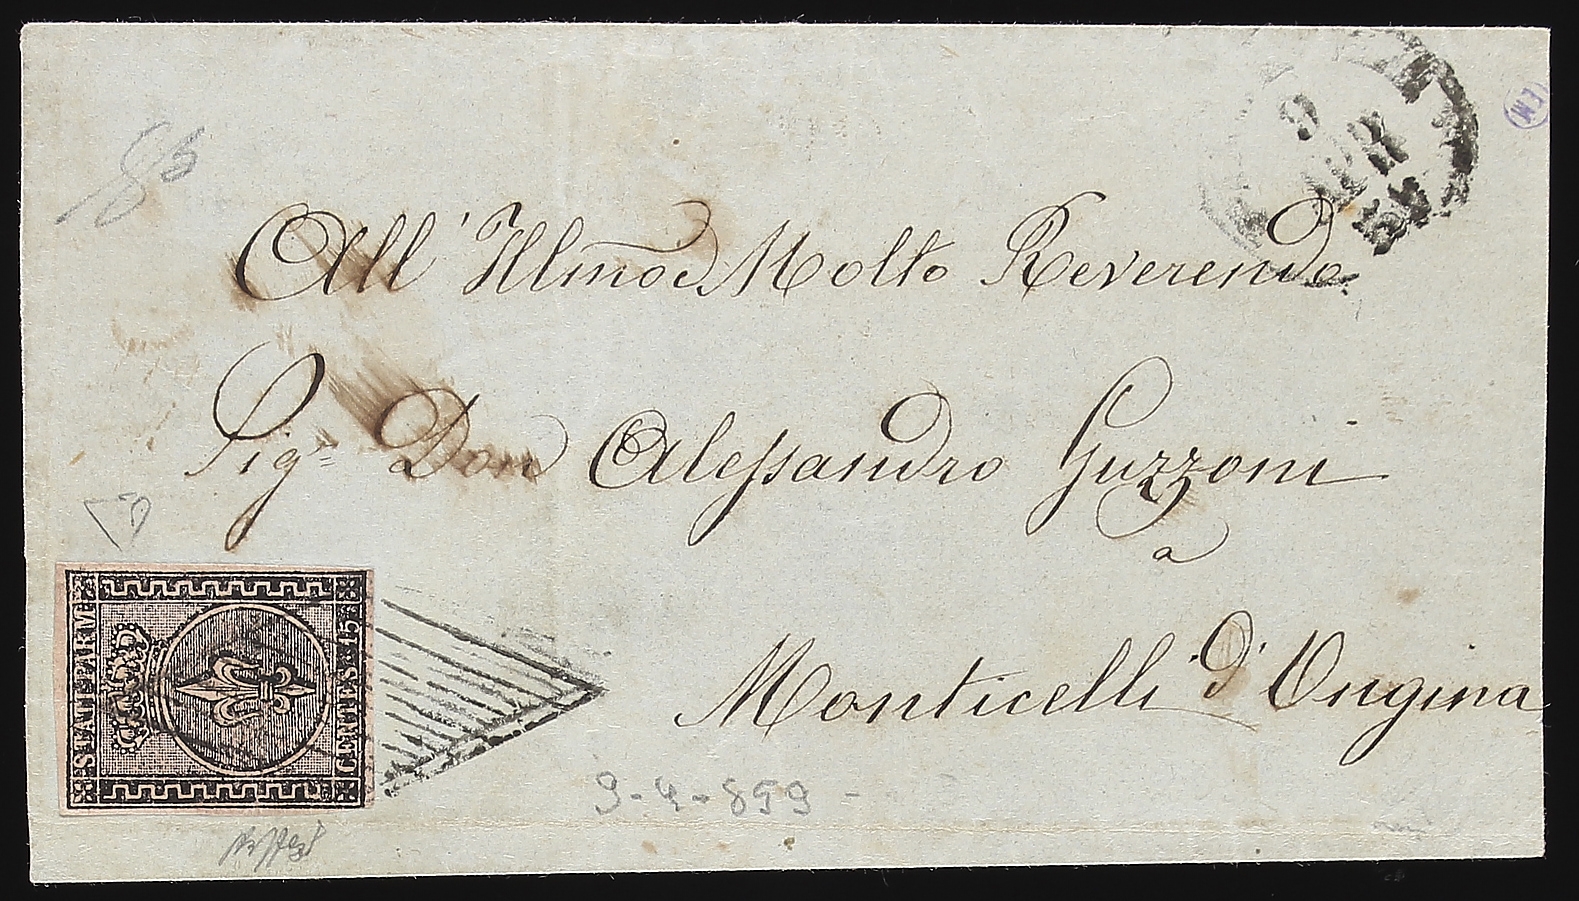 (EM)
9
APR
85
All' Illmo e Molto Reverendo
Sigr. Don Alessandro Guzzoni
a
Monticelli d'Ongina
STATI PARM.
CENTES. 15
9-4-859-